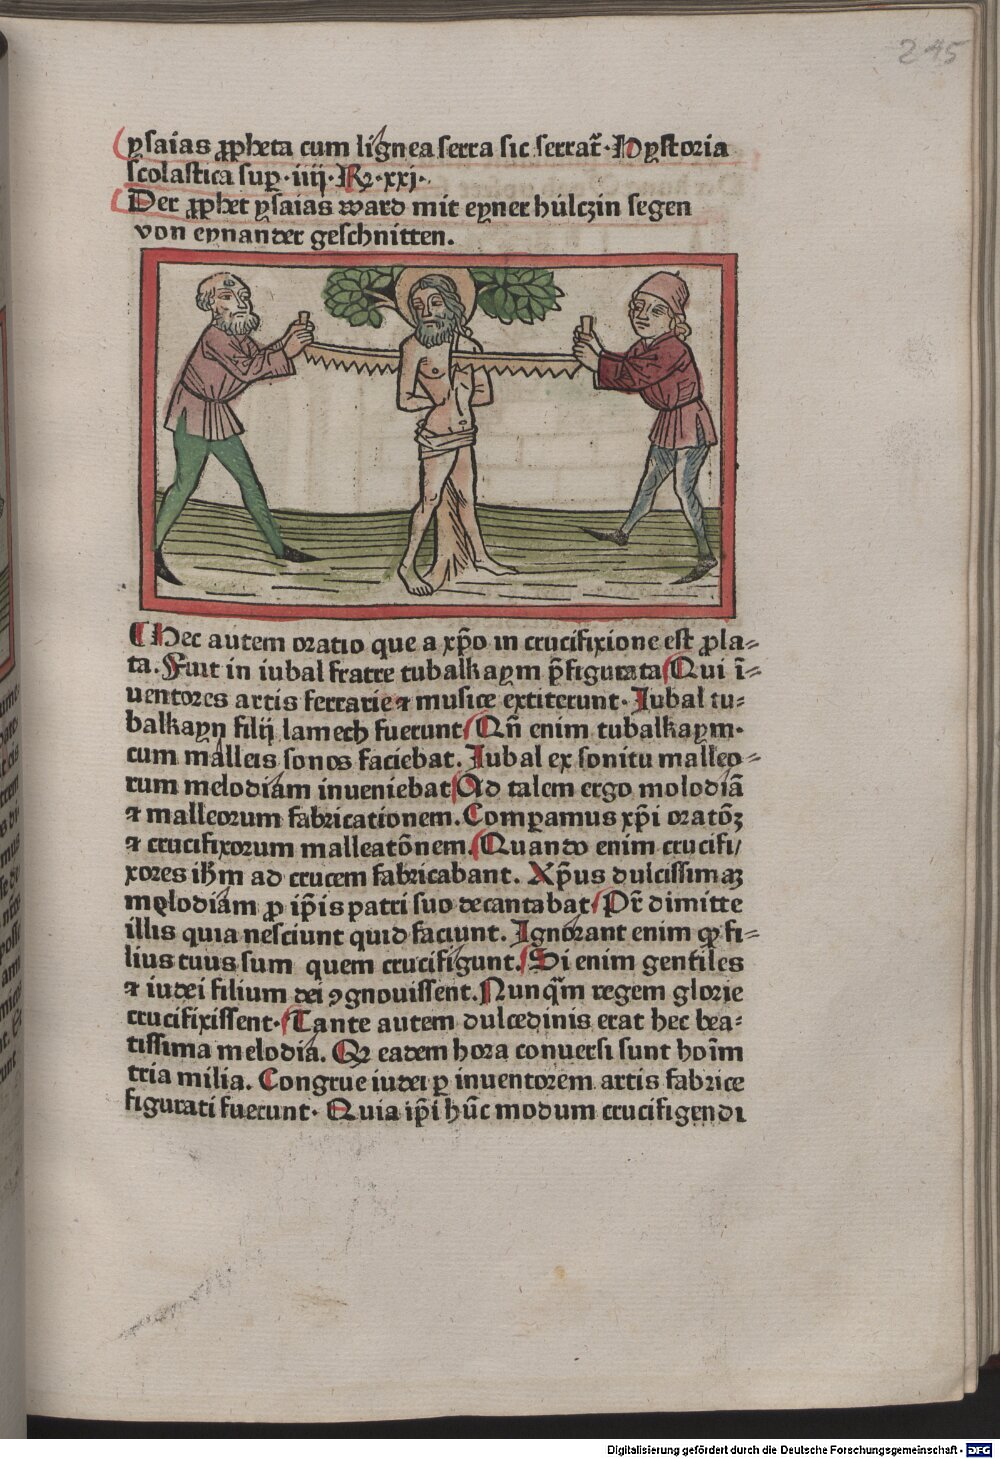 245
ysaias ꝓpheta cum lignea serra sic serrat᷑·Hystoria
scolastica sup̱·iiij·Rꝝ·xxj·
Der ꝓphet ysaias ward mit eyner hulczin segen
von eynander geschnitten.
Hec autem oratio que a xp̄o in crucifixione est ꝓla⸗
ta. Fuit in iubal fratre tubalkaym p̄figurata Qui ī⸗
uentores artis ferrarie ⁊ musice extiterunt· Iubal tu⸗
balkayn filij lamech fuerunt Qn̄ enim tubalkaym·
cum malleis sonos faciebat. Iubal ex sonitu malleo⸗
rum melodiam inueniebat Ad talem ergo molodiā
⁊ malleorum fabricationem. Comꝑamus xp̄i oratōꝫ
⁊ crucifixorum malleatōnem. Quando enim crucifi/
xores ih̄m ad crucem fabricabant. Xp̄us dulcissimaꝫ
melodiam ꝓ ip̄is patri suo decantabat Pr̄ dimitte
illis quia nesciunt quid faciunt. Ignorant enim ꝙ fi⸗
lius tuus sum quem crucifigunt. Si enim gentiles
⁊ iudei filium dei ꝯgnouissent. Nunq̄m regem glorie
crucifixissent· Tante autem dulcedinis erat hec bea⸗
tissima melodia. Qꝫ eadem hora conuersi sunt hoīm
tria milia. Congrue iudei ꝑ inuentorem artis fabrice
figurati fuerunt· Quia ip̄i hūc modum crucifigendi
Digitalisierung gefördert durch die Deutsche Forschungsgemeinschaft - DFG